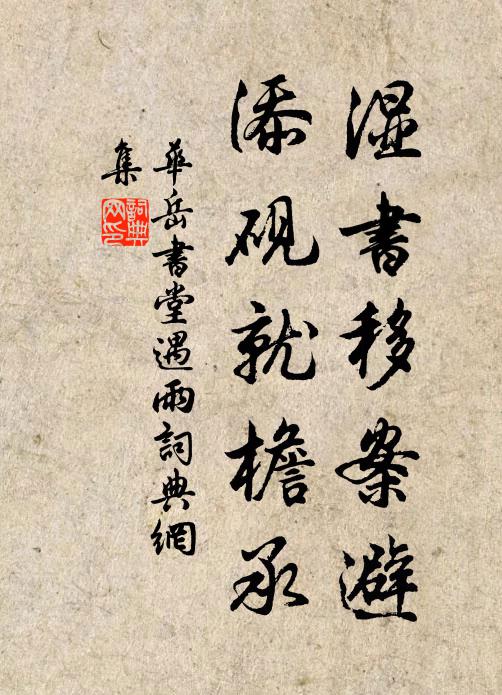 湿書移案避
添硯就檐承
華岳書堂遇雨詞典網
集
詞典網印